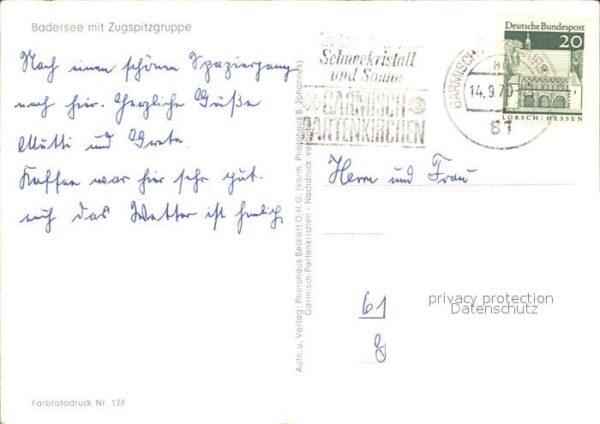 Badersee mit Zugspitzgruppe
Nach einem schönen Spaziergang
nach hier. Herzliche Grüße
Mutti und Greta.
Kaffee war hier sehr gut.
auch das Wetter ist herrlich
Farbfotodruck Nr. 128
Aufn. u. Verlag: Photohaus Beckert O.H.G. (vorm. Photohaus B. Johannes)
Garmisch-Partenkirchen - Nachdruck
Schneekristall
und Sonne
GARMISCH
PARTENKIRCHEN
GARMISCH
14. 9.70
81
Deutsche Bundespost
20
LORSCH/HESSEN
Herrn und Frau
61
privacy protection
Datenschutz